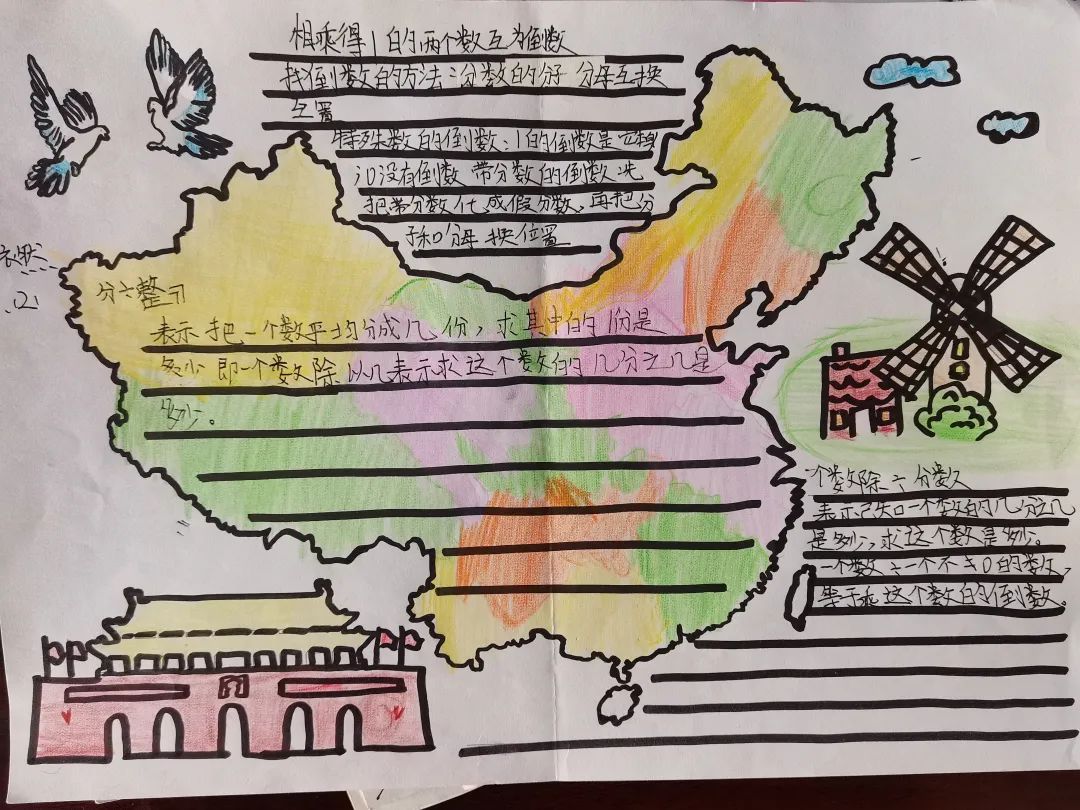 相乘得1的两个数互为倒数
找倒数的方法:分数的分子 分母互换
位置
特殊数的倒数:1的倒数是它
0没有倒数 带分数的倒数 先
把带分数化成假分数,再把分
子和分母 换位置
分÷整
表示 把一个数平均分成几份,求其中的1份是
多少 即一个数除以几表示求这个数的几分之几是
多少。
一个数除÷分数
表示已知一个数的几分之几
是多少,求这个数是多少。
一个数÷一个不=0的数,
等于乘这个数的倒数。